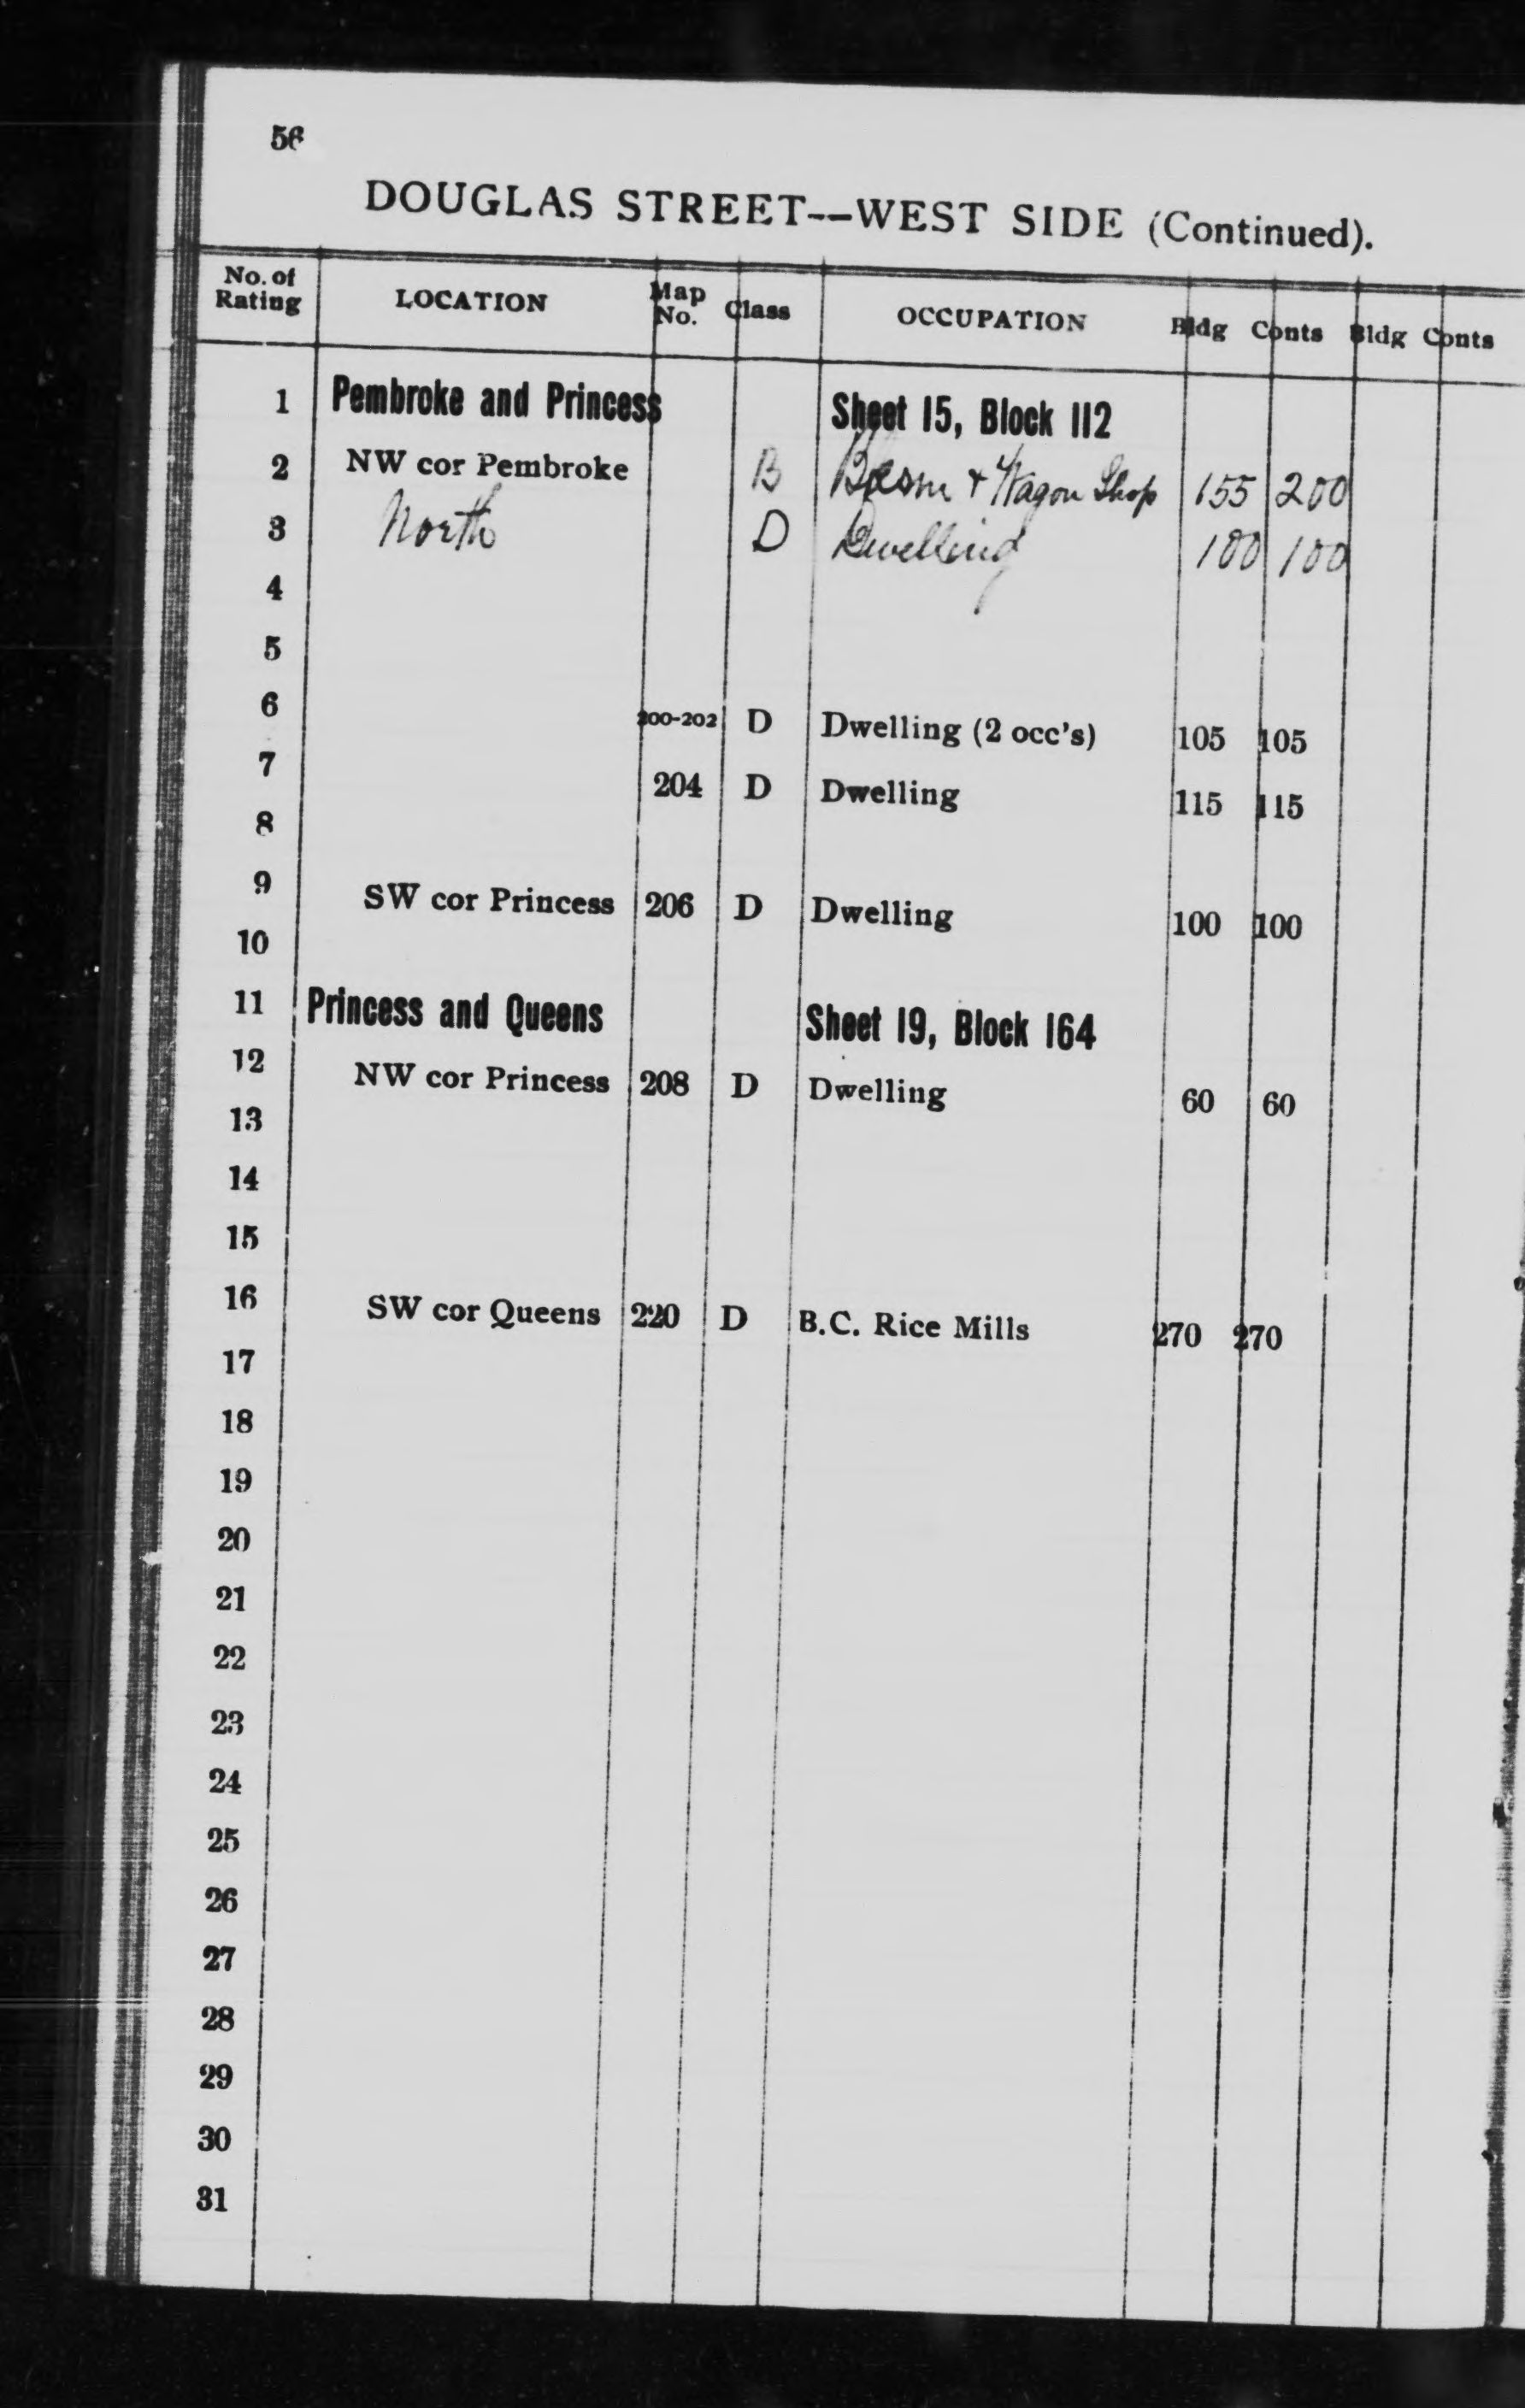 56
DOUGLAS STREET--WEST SIDE (Continued).
No. of Rating LOCATION Map No. Class OCCUPATION Bldg Conts Bldg Conts
1 Pembroke and Princess Sheet 15, Block 112
2 NW cor Pembroke B & Wagon Shop 155 200
3 North D Dwelling 100 100
4
5
6 200-202 D Dwelling (2 occ's) 105 105
7 204 D Dwelling 115 115
8
9 SW cor Princess 206 D Dwelling 100 100
10
11 Princess and Queens Sheet 19, Block 164
12 NW cor Princess 208 D Dwelling 60 60
13
14
15
16 SW cor Queens 220 D B.C. Rice Mills 270 270
17
18
19
20
21
22
23
24
25
26
27
28
29
30
31